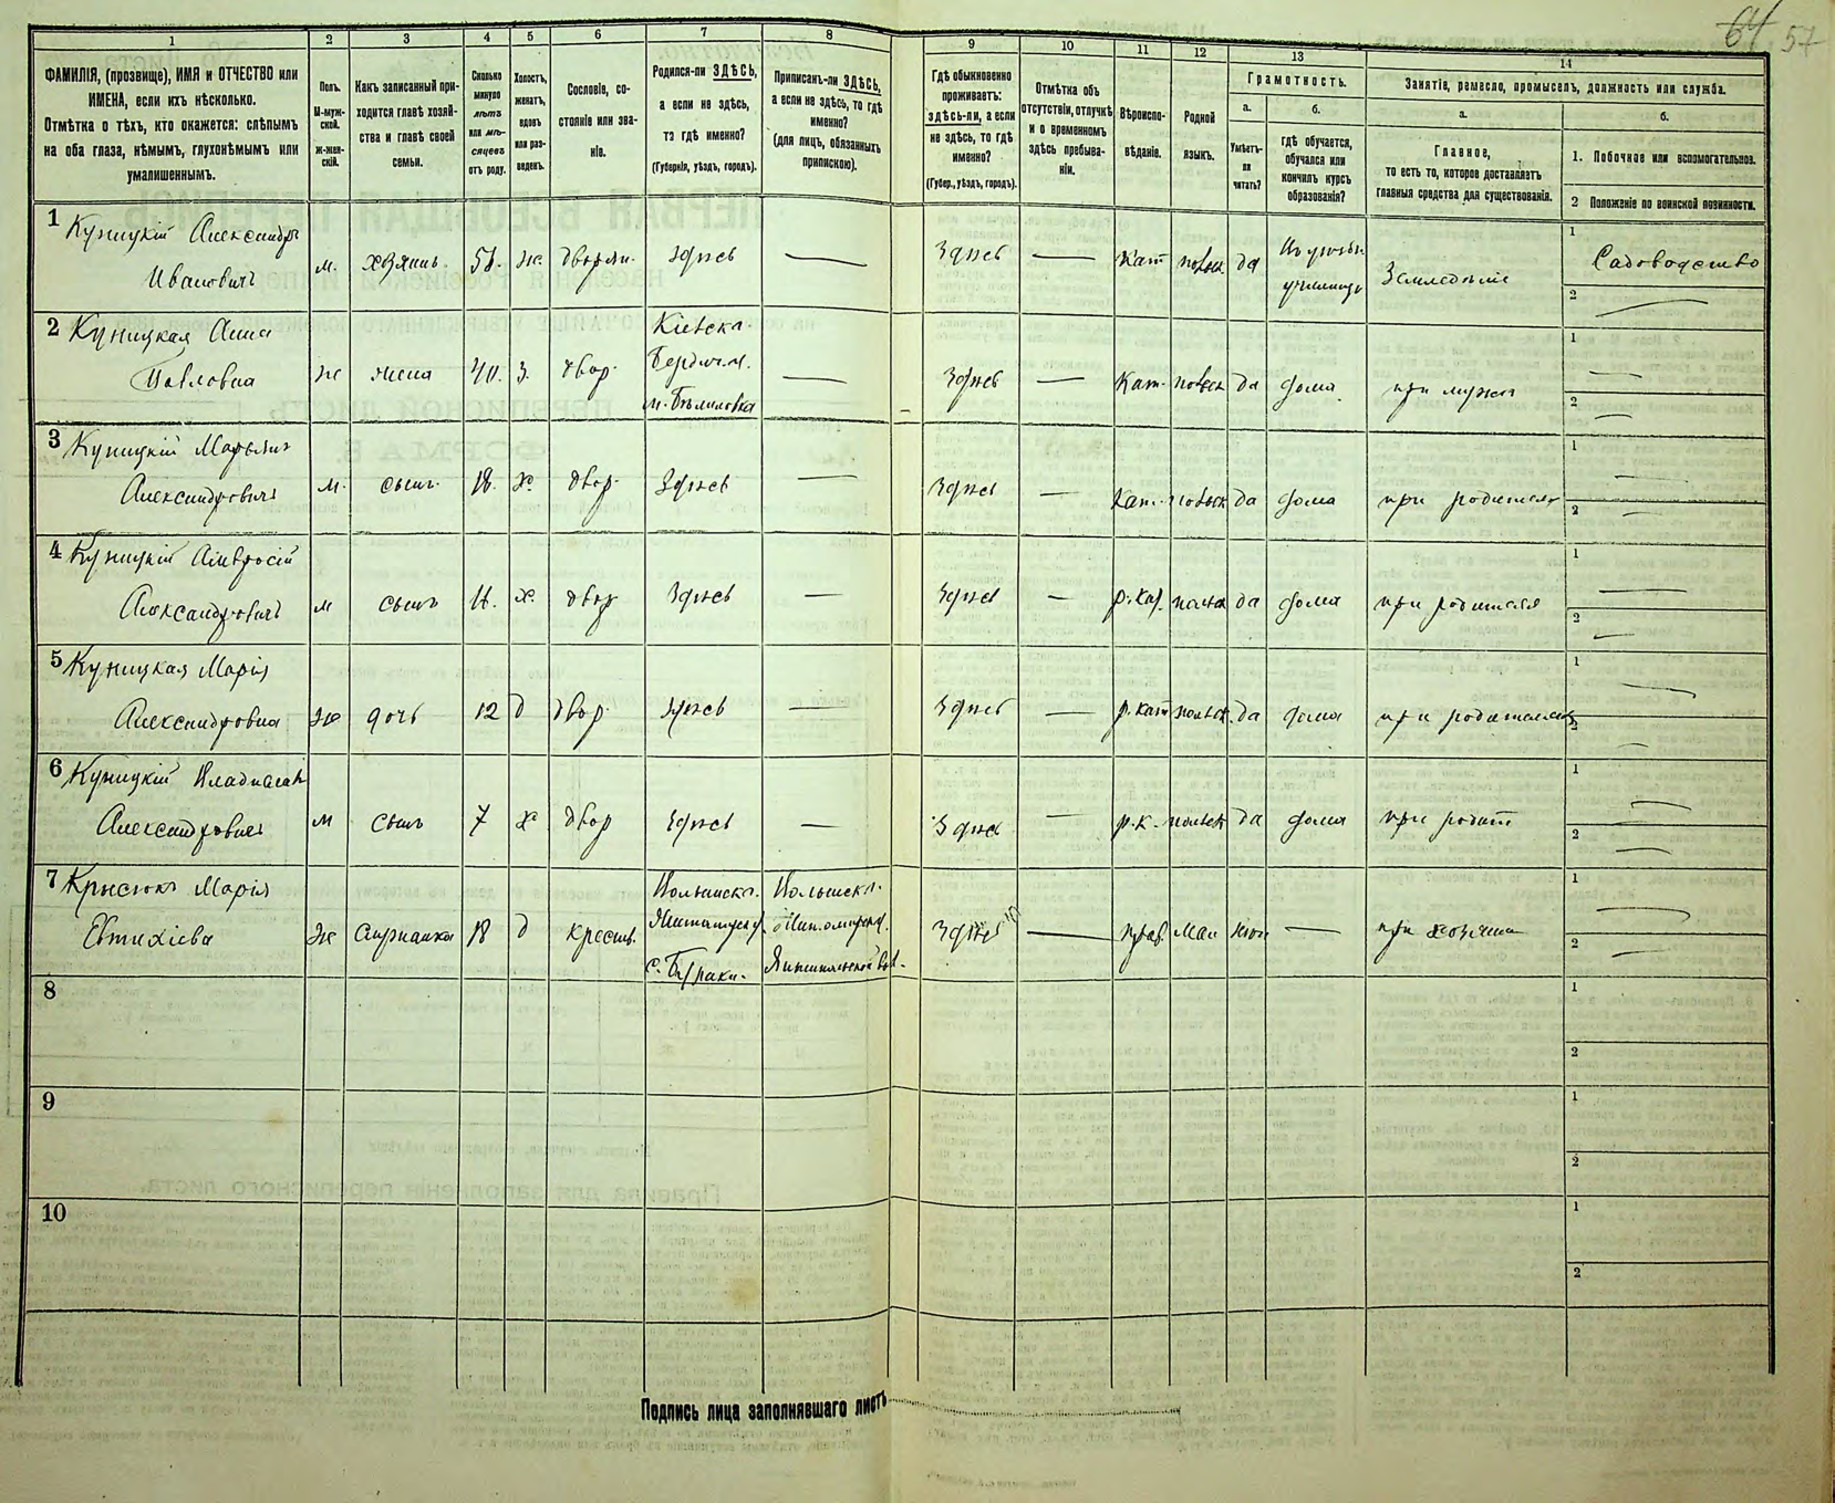 64 57
1 2 3 4 5 6 7 8 9 10 11 12 13 14
ФАМИЛІЯ, (прозвище), ИМЯ и ОТЧЕСТВО или
ИМЕНА, если ихъ нѣсколько.
Отмѣтка о тѣхъ, кто окажется: слѣпымъ
на оба глаза, нѣмымъ, глухонѣмымъ или
умалишеннымъ.
Полъ.
М-муж-
ской.
Ж-жен-
скій.
Какъ записанный при-
ходится главѣ хозяй-
ства и главѣ своей
семьи.
Сколько
минуло
лѣтъ
или мѣ-
сяцевъ
отъ роду.
Холостъ,
женатъ,
вдовъ
или раз-
веденъ.
Сословіе, со-
стояніе или зва-
ніе.
Родился-ли ЗДѢСЬ,
а если не здѣсь,
то гдѣ именно?
(Губернія, уѣздъ, городъ).
Приписанъ-ли ЗДѢСЬ,
а если не здѣсь, то гдѣ
именно?
(для лицъ, обязанныхъ
припискою).
Гдѣ обыкновенно
проживаетъ:
здѣсь-ли, а если
не здѣсь, то гдѣ
именно?
(Губер., уѣздъ, городъ).
Отмѣтка объ
отсутствіи, отлучкѣ
и о временномъ
здѣсь пребыва-
ніи.
Вѣроиспо-
вѣданіе.
Родной
языкъ.
Грамотность.
а.
Умѣетъ-
ли
читать?
б.
гдѣ обучается,
обучался или
кончилъ курсъ
образованія?
Занятіе, ремесло, промыселъ, должность или служба.
а.
Главное,
то есть то, которое доставляетъ
главныя средства для существованія.
б.
1. Побочное или вспомогательное.
2 Положеніе по воинской повинности.
1 Куницкій Александръ
Ивановичъ
м. хозяинъ 51. дворян. Здѣсь Здѣсь Кат да Земледѣліе 1 Садоводство
2
2 Куницкая Анна
Павловна
Кіевска.
Бердич. у.
м. Бѣлиловка
ж жена 40. з. двор. Здѣсь Кат. да дома при мужѣ 1
2
3 Куницкій
Александровичъ
м. сынъ 18. х. двор. Здѣсь Здѣсь Кат. да дома при 1
2
4 Куницкій Амвросій
Александровичъ
м сынъ х. двор Здѣсь Здѣсь р. кат. да дома при 1
2
5 Куницкая Марія
Александровна
ж дочь 12 д двор. Здѣсь Здѣсь р. кат да дома при родителяхъ 1
2
6 Куницкій Владиславъ
Александровичъ
м сынъ 7 х двор Здѣсь Здѣсь р. к. да дома при родит 1
2
7 Марія
Евтихіева
ж служанка 18 д крестьян.
Волынска.
с. Бураки.
Волынска.
Здѣсь прав. Мал при хозяинѣ 1
2
8 1
2
9 1
2
10 1
2
Подпись лица заполнявшаго листъ